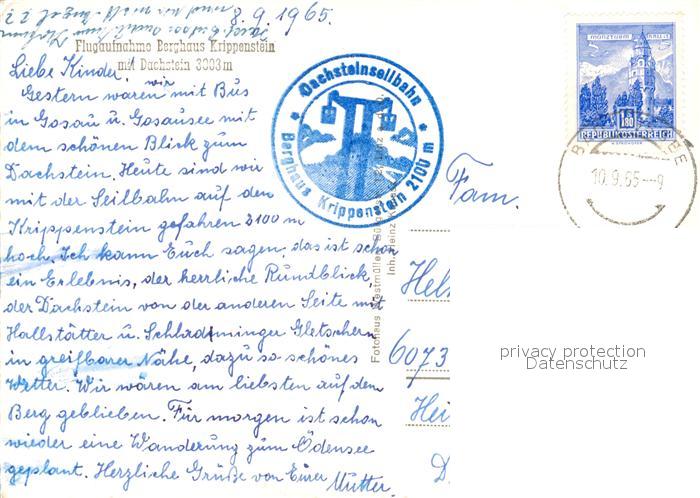 8. 9. 1965.
Flugaufnahme Berghaus Krippenstein
mit Dachstein 3003 m
Liebe Kinder!
wir
Gestern waren mit Bus
in Gosau u. Gosausee mit
dem schönen Blick zum
Dachstein. Heute sind wir
mit der Seilbahn auf den
Krippenstein gefahren 2100 m
hoch. Ich kann Euch sagen, das ist schon
ein Erlebnis, der herrliche Rundblick,
der Dachstein von der anderen Seite mit
Hallstätter u. Schladminger Gletschern
in greifbarer Nähe, dazu so schönes
Wetter. Wir wären am liebsten auf dem
Berg geblieben. Für morgen ist schon
wieder eine Wanderung zum Ödensee
geplant. Herzliche Grüße von Eurer
Mutter.
Dachsteinseilbahn
Berghaus Krippenstein 2100 m
MÜNZTURM
1.80
REPUBLIK ÖSTERREICH
10.9.65--9
Fam.
Hel
6073
Hei
D
Fotohaus
privacy protection
Datenschutz